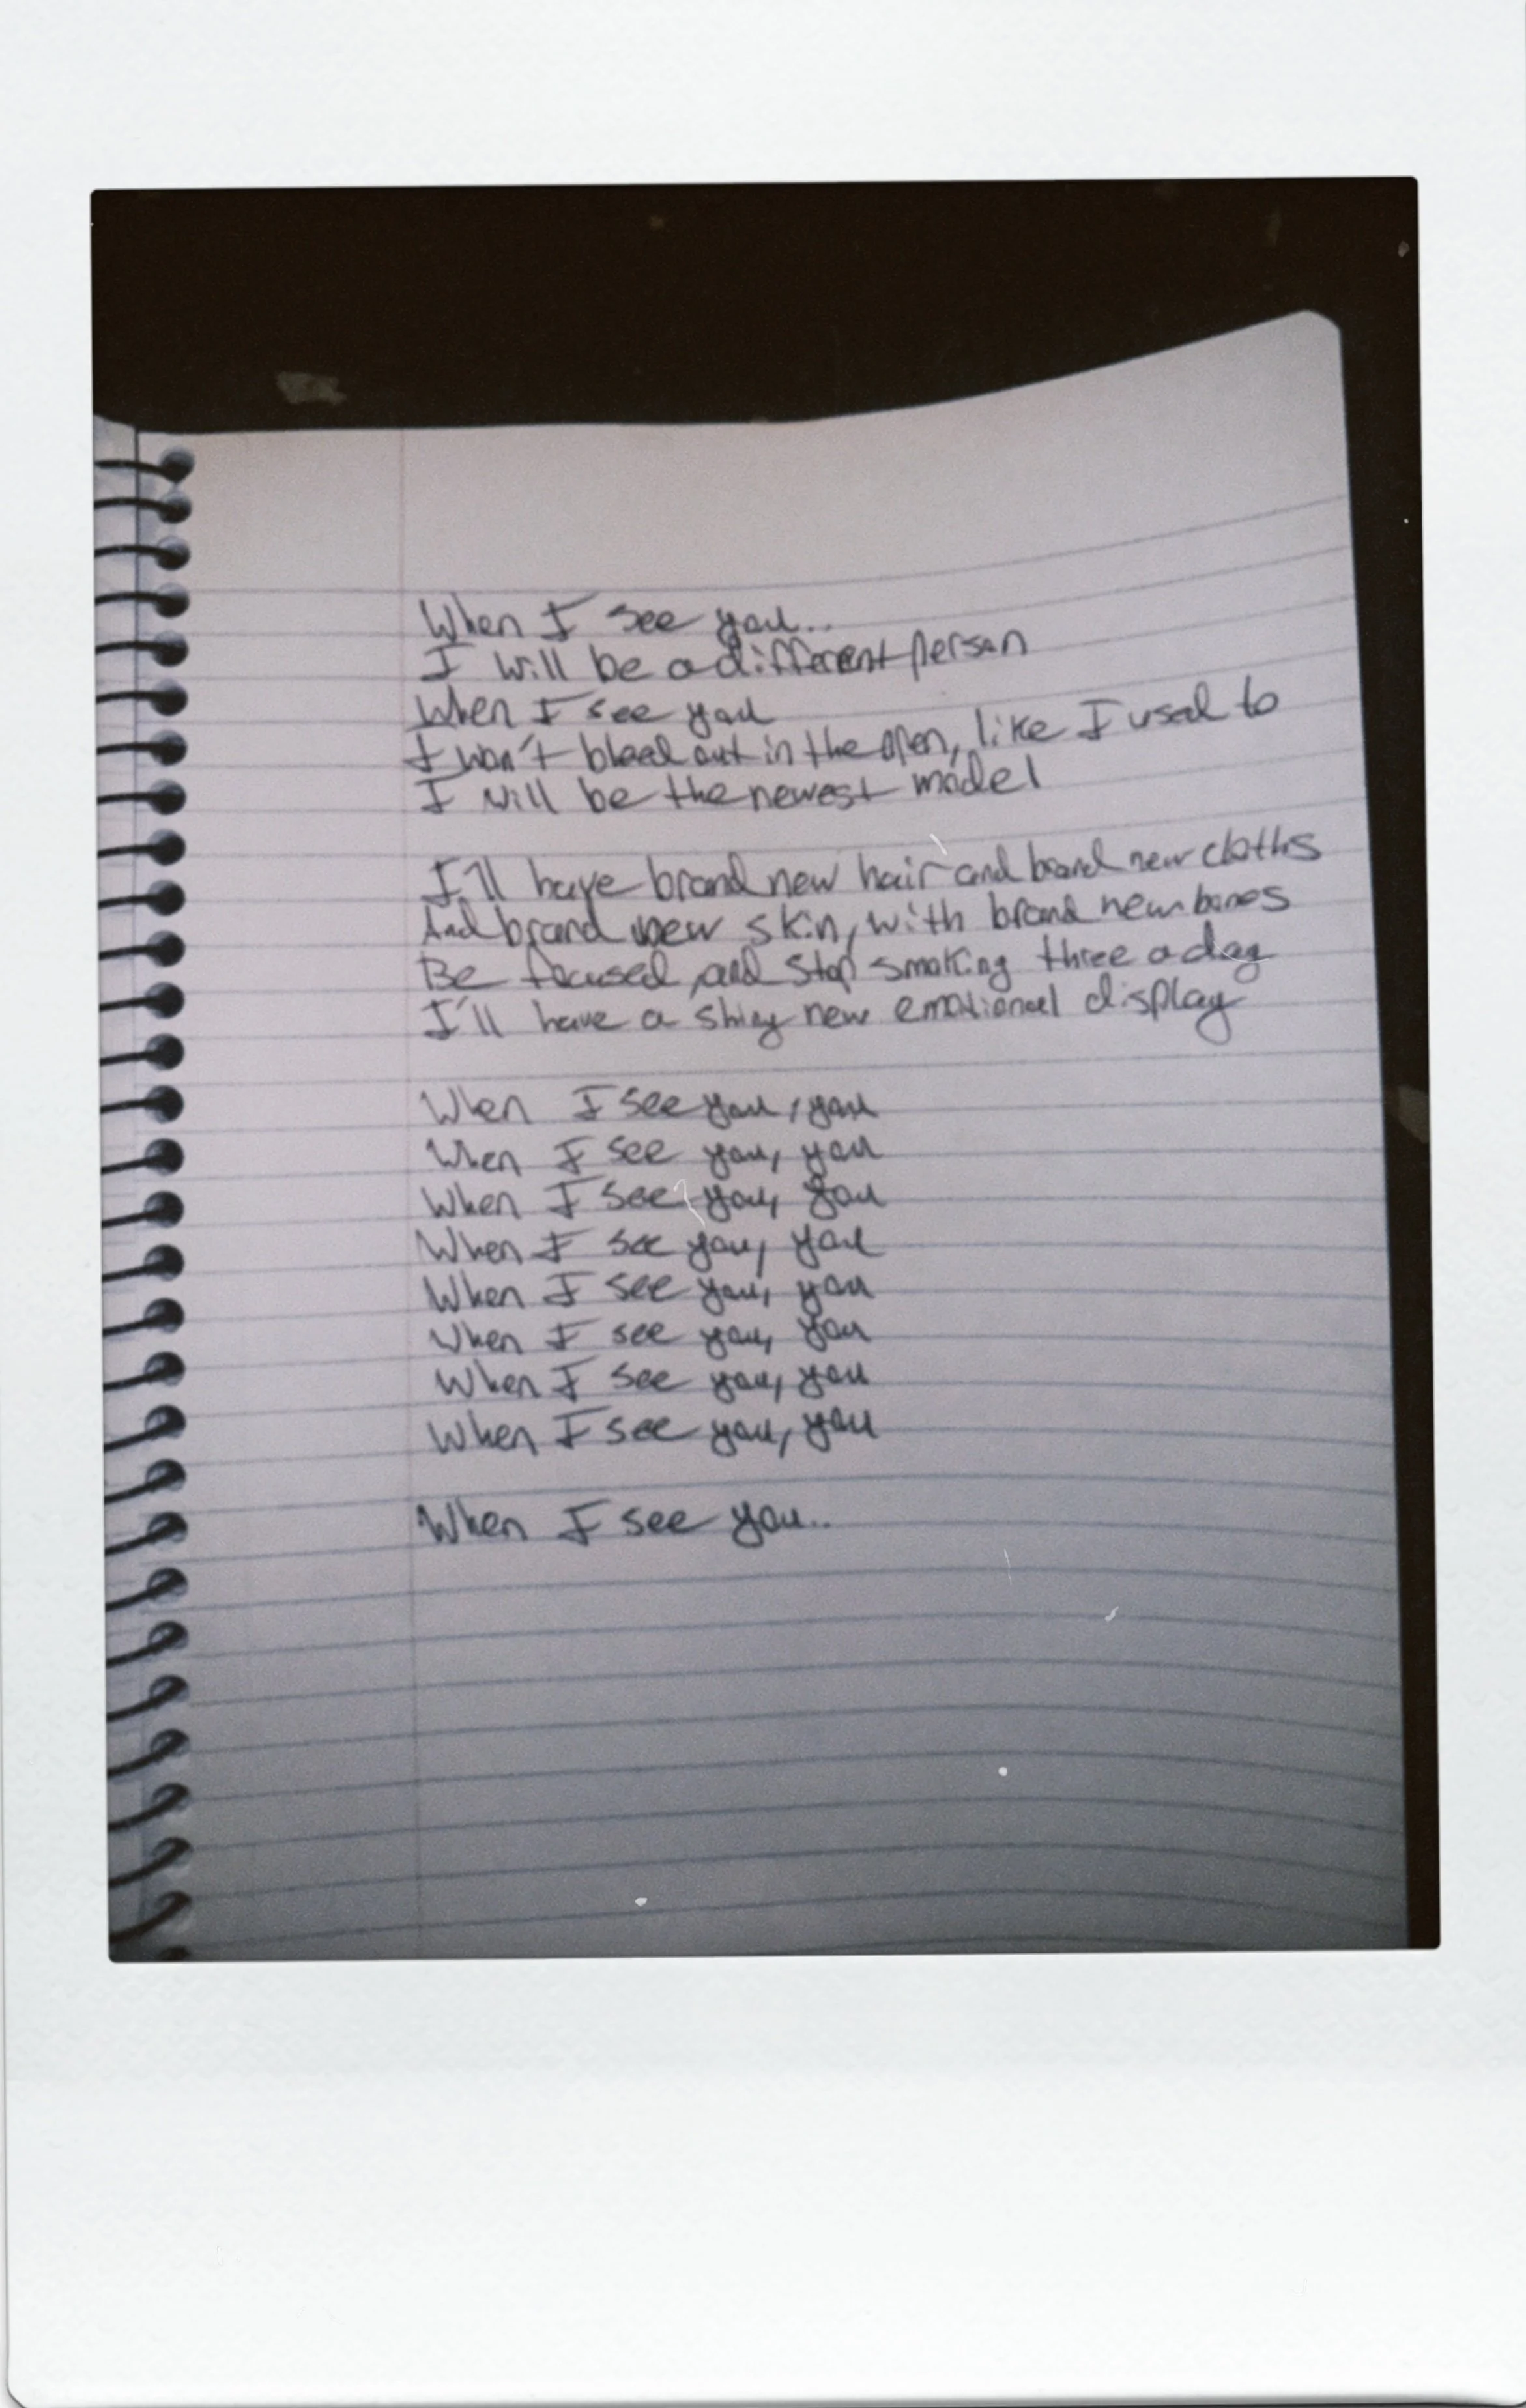 When I see you..
I will be a different person
When I see you
I won't bleed out in the open, like I used to
I will be the newest model
I'll have brand new hair and brand new cloths
And brand new skin, with brand new bones
Be focused, and stop smoking three a day
I'll have a shiny new emotional display
When I see you, you
When I see you, you
When I see you, you
When I see you, you
When I see you, you
When I see you, you
When I see you, you
When I see you, you
When I see you..